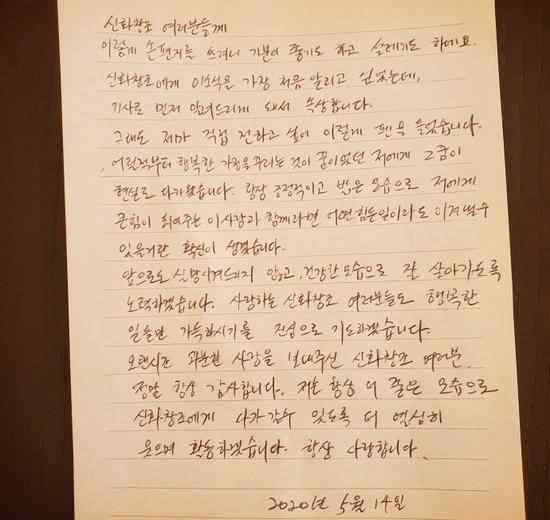 신화창조 여러분들께
이렇게 손편지를 쓰려니 기분이 좋기도 하고 설레기도 하네요.
신화창조에게 이소식을 가장 처음 알리고 싶었는데,
기사로 먼저 알려드리게 돼서 속상합니다.
그래도 제가 직접 전하고 싶어 이렇게 펜을 들었습니다.
어린적부터 행복한 가정을 꾸리는 것이 꿈이었던 저에게 그 꿈이
현실로 다가왔습니다. 항상 긍정적이고 밝은 모습으로 저에게
큰힘이 되어주는 이사람과 함께라면 어떤 힘든일이라도 이겨낼수
있을거란 확신이 생겼습니다.
앞으로도 실망시켜드리지 않고, 건강한 모습으로 잘 살아가도록
노력하겠습니다. 사랑하는 신화창조 여러분들도 행복한
일들만 가득하시기를 진심으로 기도하겠습니다.
오랜시간 과분한 사랑을 보내주신 신화창조 여러분.
정말 항상 감사합니다. 저는 항상 더 좋은 모습으로
신화창조에게 다가갈수 있도록 더 열심히
웃으며 활동하겠습니다. 항상 사랑합니다.
2020년 5월 14일